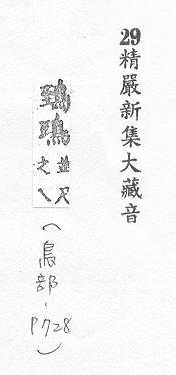 29精嚴新集大藏音
並尺
之乀
(鳥部、P728)